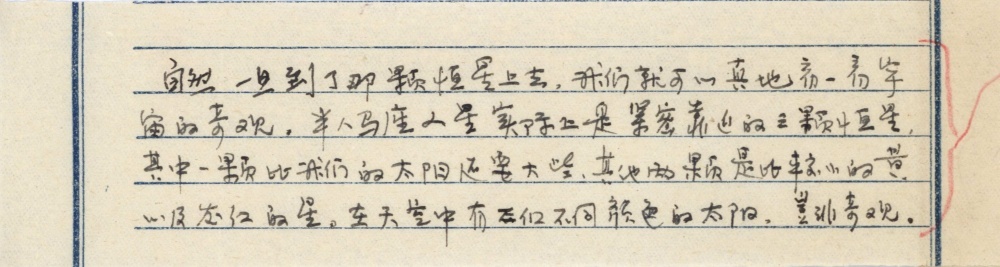 自然一旦到了那颗恒星上去，我们就可以真地看一看宇
宙的奇观。半人马座α星实际上是紧密靠近的三颗恒星，
其中一颗比我们的太阳还要大些，其他两颗是比较小的黄
以及发红的星。在天空中有不同颜色的太阳，岂非奇观。